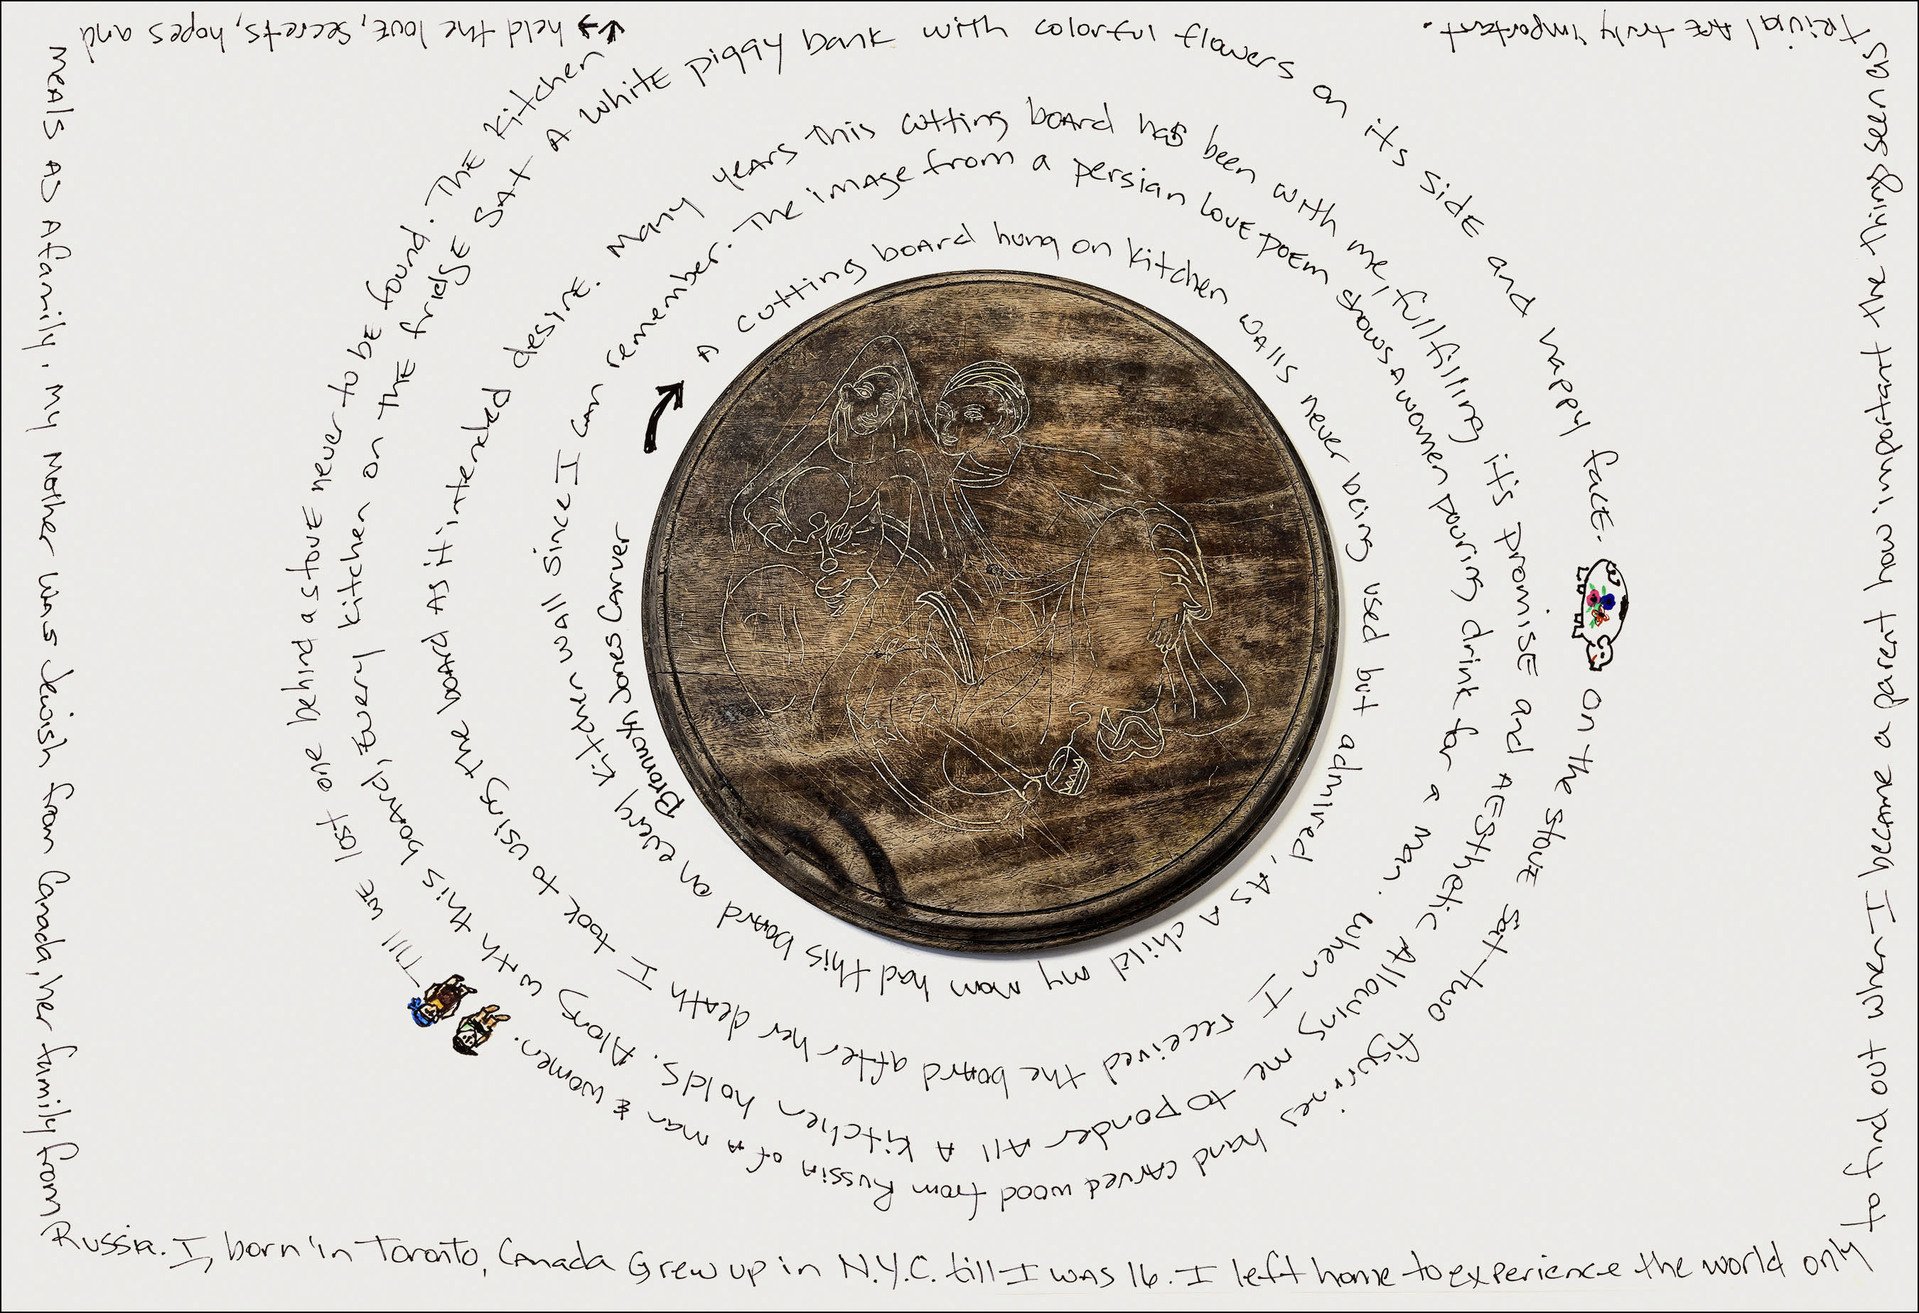 A cutting board hung on kitchen walls never being used but admired. As A child my mom had this board on every kitchen wall since I can remember. The image from a persian love poem shows a women pouring drink for a man. When I received the board after her death I took to using the board as it intended desire. Many years this cutting board has been with me, fullfilling it's promise and Aesthetic Allowing me to ponder All A kitchen holds. Along with this board, Every kitchen on the fridge sat A white piggy bank with colorful flowers on its side and happy face. on the stove sat two figurines hand carved wood from Russia of A man & women. Till we lost one behind a stove never to be found. The kitchen
held the love, secrets, hopes and
meals as A family. My Mother was Jewish from Canada, her family from
Russia. I, born in Toronto, Canada Grew up in N.Y.C. till I was 16. I left home to experience the world only
to find out when I became a parent how important the things seen as
trivial are truly important.
Jones Carver